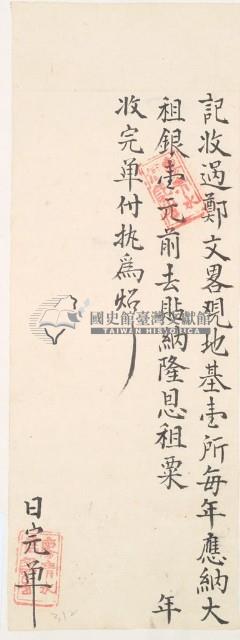 記收過鄭文畧現地基壹所每年應納大
租銀壹元前去貼納隆恩租粟 年
收完単付執為炤
日完単
國史館臺灣文獻館
TAIWAN HISTORICA